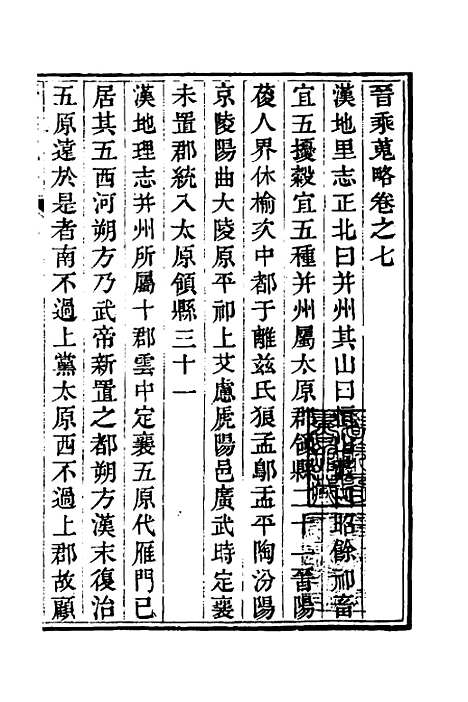 晉乘蒐略卷之七
漢地里志正北曰并州其山曰恒山藪曰昭餘祁畜
宜五擾穀宜五種并州屬太原郡領縣二十一晉陽
葰人界休榆次中都于離茲氏狼孟鄔盂平陶汾陽
京陵陽曲大陵原平祁上艾慮虎陽邑廣武時定襄
未置郡統入太原領縣三十一
漢地理志并州所屬十郡雲中定襄五原代雁門已
居其五西河朔方乃武帝新置之都朔方漢末復治
五原遠於是者南不過上黨太原西不過上郡故顧